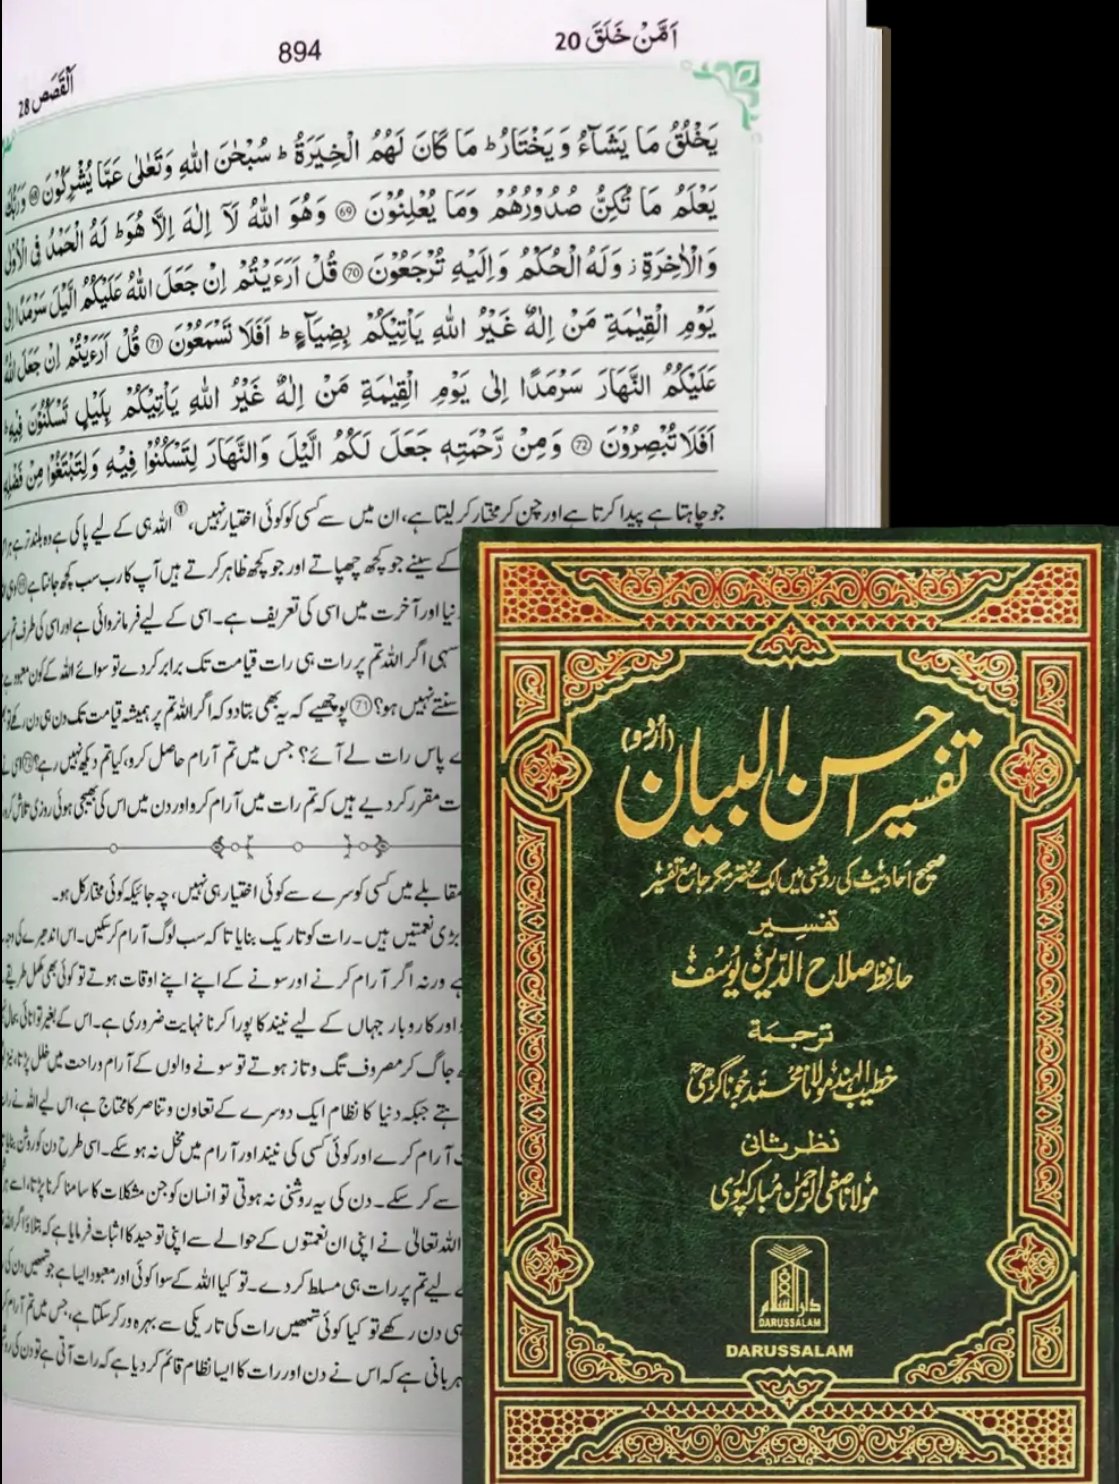 اَمَّنْ خَلَقَ 20
894
اَلْقَصَص 28
يَخْلُقُ مَا يَشَآءُ وَيَخْتَارُ ؕ مَا كَانَ لَهُمُ الْخِيَرَةُ ؕ سُبْحٰنَ اللّٰهِ وَتَعٰلٰى عَمَّا يُشْرِكُوْنَ ۝68 وَرَبُّكَ
يَعْلَمُ مَا تُكِنُّ صُدُوْرُهُمْ وَمَا يُعْلِنُوْنَ ۝69 وَهُوَ اللّٰهُ لَآ اِلٰهَ اِلَّا هُوَ ؕ لَهُ الْحَمْدُ فِى الْاُوْلٰى
وَالْاٰخِرَةِ ز وَلَهُ الْحُكْمُ وَاِلَيْهِ تُرْجَعُوْنَ ۝70 قُلْ اَرَءَيْتُمْ اِنْ جَعَلَ اللّٰهُ عَلَيْكُمُ الَّيْلَ سَرْمَدًا اِلٰى
يَوْمِ الْقِيٰمَةِ مَنْ اِلٰهٌ غَيْرُ اللّٰهِ يَاْتِيْكُمْ بِضِيَآءٍ ؕ اَفَلَا تَسْمَعُوْنَ ۝71 قُلْ اَرَءَيْتُمْ اِنْ جَعَلَ اللّٰهُ
عَلَيْكُمُ النَّهَارَ سَرْمَدًا اِلٰى يَوْمِ الْقِيٰمَةِ مَنْ اِلٰهٌ غَيْرُ اللّٰهِ يَاْتِيْكُمْ بِلَيْلٍ تَسْكُنُوْنَ فِيْهِ ؕ
اَفَلَا تُبْصِرُوْنَ ۝72 وَمِنْ رَّحْمَتِهٖ جَعَلَ لَكُمُ الَّيْلَ وَالنَّهَارَ لِتَسْكُنُوْا فِيْهِ وَلِتَبْتَغُوْا مِنْ فَضْلِهٖ
جو چاہتا ہے پیدا کرتا ہے اور چن کر مختار کر لیتا ہے، ان میں سے کسی کو کوئی اختیار نہیں،① اللہ ہی کے لیے پاکی ہے وہ بلند تر ہے
کے سینے جو کچھ چھپاتے اور جو کچھ ظاہر کرتے ہیں آپ کا رب سب کچھ جانتا ہے
نیا اور آخرت میں اسی کی تعریف ہے۔ اسی کے لیے فرمانروائی ہے اور اسی کی طرف تم
سہی اگر اللہ تم پر رات ہی رات قیامت تک برابر کر دے تو سوائے اللہ کے کون معبود ہے
سنتے نہیں ہو؟ (71) پوچھیے کہ یہ بھی بتا دو کہ اگر اللہ تم پر ہمیشہ قیامت تک دن ہی دن رکھے تو
پاس رات لے آئے؟ جس میں تم آرام حاصل کرو، کیا تم دیکھ نہیں رہے؟ (72)
مقرر کر دیے ہیں کہ تم رات میں آرام کرو اور دن میں اس کی بھیجی ہوئی روزی تلاش کرو
مقابلے میں کسی کو سرے سے کوئی اختیار ہی نہیں، چہ جائیکہ کوئی مختار کل ہو۔
بڑی نعمتیں ہیں۔ رات کو تاریک بنایا تا کہ سب لوگ آرام کر سکیں۔ اس اندھیرے کی وجہ
ورنہ اگر آرام کرنے اور سونے کے اپنے اپنے اوقات ہوتے تو کوئی بھی مکمل طریقے
اور کاروبار جہاں کے لیے نیند کا پورا کرنا نہایت ضروری ہے۔ اس کے بغیر توانائی بحال
جاگ کر مصروف تگ و تاز ہوتے تو سونے والوں کے آرام و راحت میں خلل پڑتا، نیز
جبکہ دنیا کا نظام ایک دوسرے کے تعاون و تناصر کا محتاج ہے، اس لیے اللہ نے
آرام کرے اور کوئی کسی کی نیند اور آرام میں مخل نہ ہو سکے۔ اسی طرح دن کو روشن بنایا
سے کر سکے۔ دن کی یہ روشنی نہ ہوتی تو انسان کو جن مشکلات کا سامنا کرنا پڑتا، اسے
اللہ تعالیٰ نے اپنی ان نعمتوں کے حوالے سے اپنی توحید کا اثبات فرمایا ہے کہ بتلاؤ اگر اللہ
لیے تم پر رات ہی مسلط کر دے۔ تو کیا اللہ کے سوا کوئی اور معبود ایسا ہے جو تمھیں دن کی
ہی دن رکھے تو کیا کوئی تمھیں رات کی تاریکی سے بہرہ ور کر سکتا ہے، جس میں تم آرام
ہربانی ہے کہ اس نے دن اور رات کا ایسا نظام قائم کر دیا ہے کہ رات آتی ہے تو دن کی
تفسیر احسن البیان (اُردو)
صحیح احادیث کی روشنی میں ایک مختصر مگر جامع تفسیر
تفسیر
حافظ صلاح الدین یوسف
ترجمة
خطیب الہند مولانا محمد جوناگڑھی
نظر ثانی
مولانا صفی الرحمن مبارکپوری
دارالسلام
DARUSSALAM
DARUSSALAM